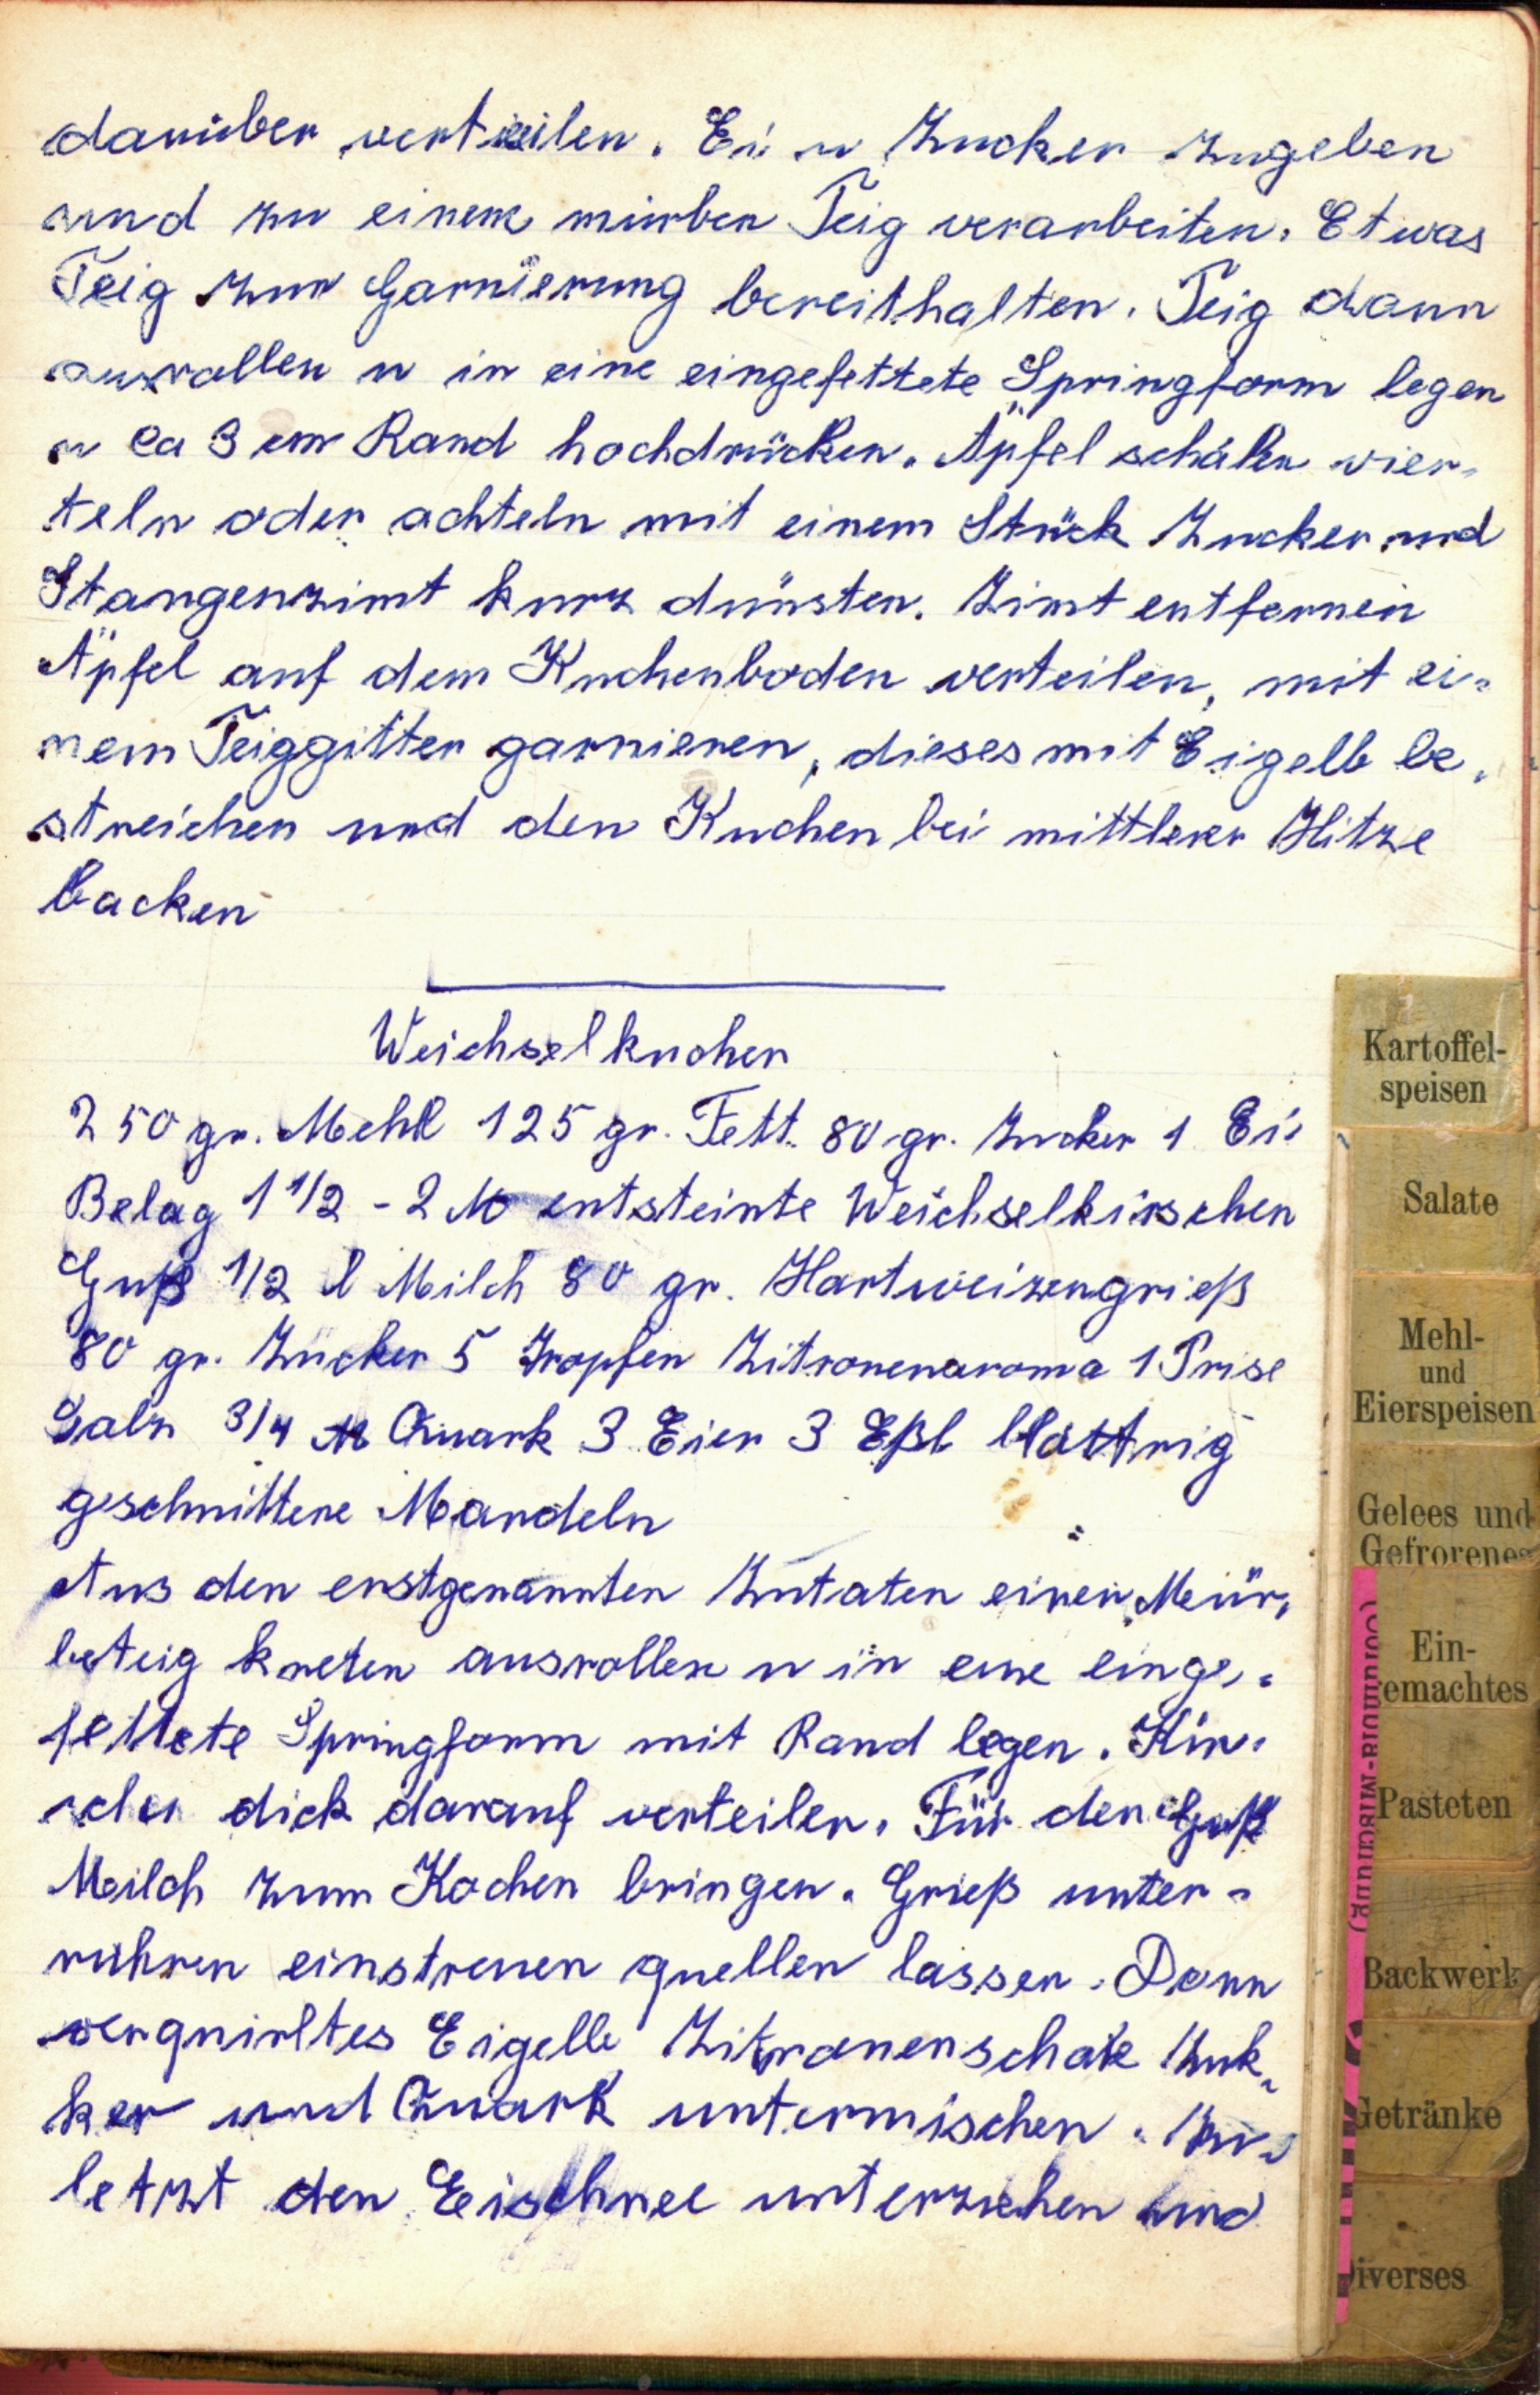 darüber verteilen. Ei u Zucker zugeben
und zu einem mürben Teig verarbeiten. Etwas
Teig zur Garnierung bereithalten. Teig dann
ausrollen u in eine eingefettete Springform legen
u ca 3 cm Rand hochdrücken. Äpfel schälen vier-
teln oder achteln mit einem Stück Zucker und
Stangenzimt kurz dünsten. Zimt entfernen
Äpfel auf dem Kuchenboden verteilen, mit ei-
nem Teiggitter garnieren, dieses mit Eigelb be-
streichen und den Kuchen bei mittlerer Hitze
backen
Weichselkuchen
250 gr. Mehl 125 gr. Fett 80 gr. Zucker 1 Ei
Belag 1 1/2 - 2 entsteinte Weichselkirschen
Guß 1/2 l Milch 80 gr. Hartweizengrieß
80 gr. Zucker 5 Tropfen Zitronenaroma 1 Prise
Salz 3/4 Quark 3 Eier 3 Eßl blättrig
geschnittene Mandeln
Aus den erstgenannten Zutaten einen Mür-
beteig kneten ausrollen u in eine einge-
fettete Springform mit Rand legen. Kir-
schen dick darauf verteilen. Für den Guß
Milch zum Kochen bringen. Grieß unter-
rühren einstreuen quellen lassen. Dann
verquirltes Eigelb Zitronenschale Zuk-
ker und Quark untermischen. Zu-
letzt den Eischnee unterziehen und
Kartoffel-
speisen
Salate
Mehl-
und
Eierspeisen
Gelees und
Gefrorenes
Ein-
gemachtes
Pasteten
Backwerk
Getränke
Diverses